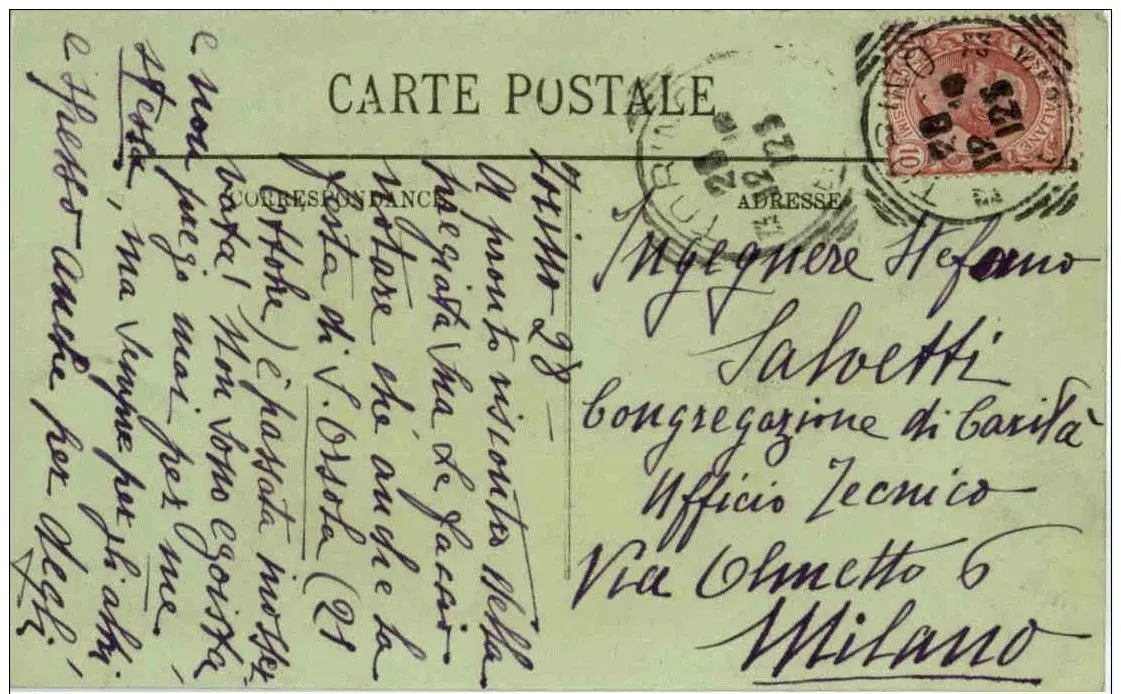 CARTE POSTALE
CORRESPONDANCE
ADRESSE
Torino - 28 -
A pronto riscontro della
pregiata Sua Le faccio
notare che anche la
festa di S. Orsola (21
Ottobre) è passata inosser
vata! Non sono egoista
e non prego mai per me
stessa, ma sempre per gli altri
e spesso anche per
Ingegnere Stefano
Salvetti
Congregazione di Carità
Ufficio Tecnico
Via Olmetto 6
Milano
10
28
12